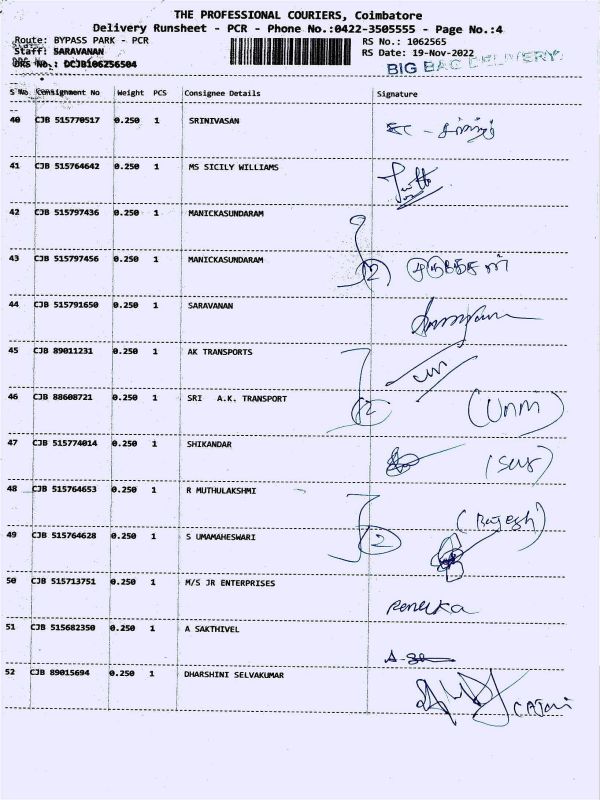 THE PROFESSIONAL COURIERS, Coimbatore
Delivery Runsheet - PCR - Phone No.:0422-3505555 - Page No.:4
Route: BYPASS PARK - PCR RS No.: 1062565
Staff: SARAVANAN RS Date: 19-Nov-2022
DRS No.: DCJB106256504 BIG BAG DELIVERY
S No. Consignment No Weight PCS Consignee Details Signature
40 CJB 515770517 0.250 1 SRINIVASAN
41 CJB 515764642 0.250 1 MS SICILY WILLIAMS
42 CJB 515797436 0.250 1 MANICKASUNDARAM
43 CJB 515797456 0.250 1 MANICKASUNDARAM 2
44 CJB 515791650 0.250 1 SARAVANAN
45 CJB 89011231 0.250 1 AK TRANSPORTS
46 CJB 88608721 0.250 1 SRI A.K. TRANSPORT 2
47 CJB 515774014 0.250 1 SHIKANDAR
48 CJB 515764653 0.250 1 R MUTHULAKSHMI (Rajesh)
49 CJB 515764628 0.250 1 S UMAMAHESWARI 2
50 CJB 515713751 0.250 1 M/S JR ENTERPRISES Renuka
51 CJB 515682350 0.250 1 A SAKTHIVEL
52 CJB 89015694 0.250 1 DHARSHINI SELVAKUMAR